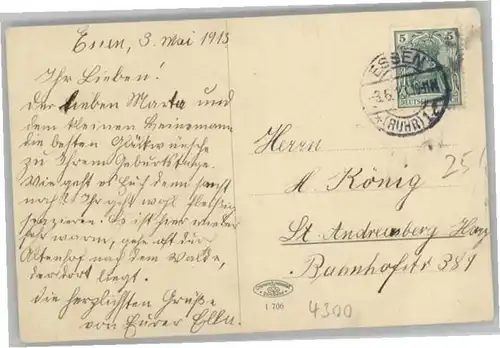 Essen, 3. Mai 1913
Ihr Lieben!
Der lieben Marta und
dem kleinen Heinemann
die besten Glückwünsche
zu Ihrem Geburtstage.
Wie geht es Euch denn sonst
noch? Ihr geht wohl fleißig
spazieren. Es ist hier wieder
sehr warm, gehe oft zur
Altenhof nach dem Walde,
der dort liegt.
die herzlichsten Grüße
von Eurer Ella.
5
DEUTSCHES
ESSEN
(RUHR) 1
Herrn
M. König
St. Andreasberg Harz
Bahnhofstr 389
25
1 706
4300